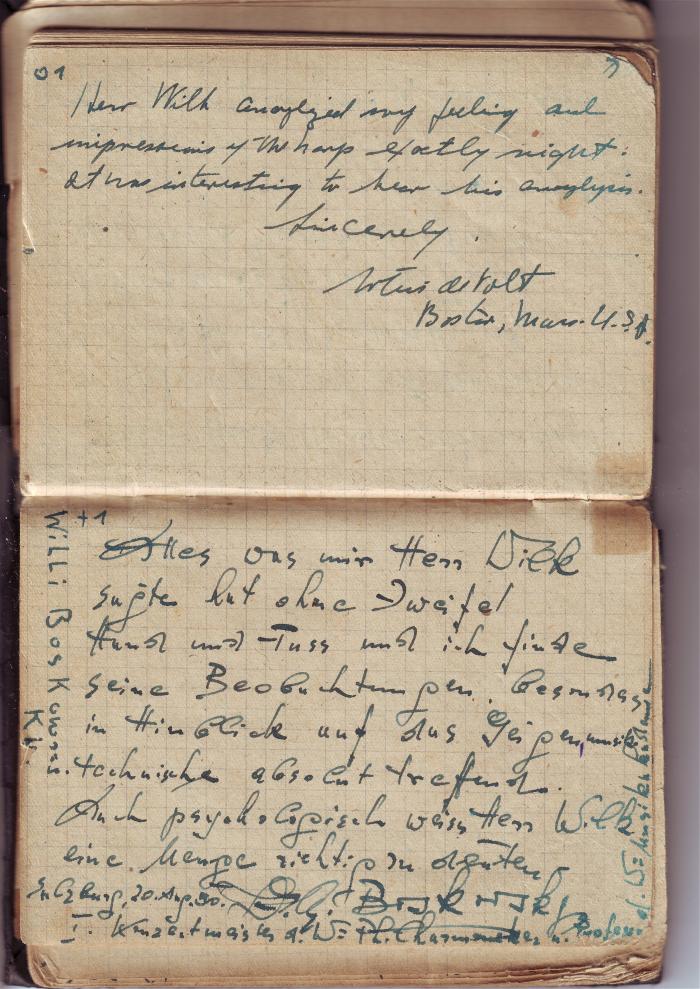 01
Herr Wilk analyized my feeling and
impressions of the harp exactly right:
it was interesting to hear his analysis.
Sincerely,
de Volt
Boston, Mass. U.S.A.
+1
Alles was mir Herr Wilk
sagte hat ohne Zweifel
Hand und Fuss und ich finde
seine Beobachtungen, besonders
in Hinblick auf das Geigen
technische absolut treffend.
Auch psychologisch weiss Herr Wilk
eine Menge richtig zu deuten
Salzburg, 20. Aug. 30. Boskowsky
I. Konzertmeister d. W. u. Profes.
Willi Boskowsky